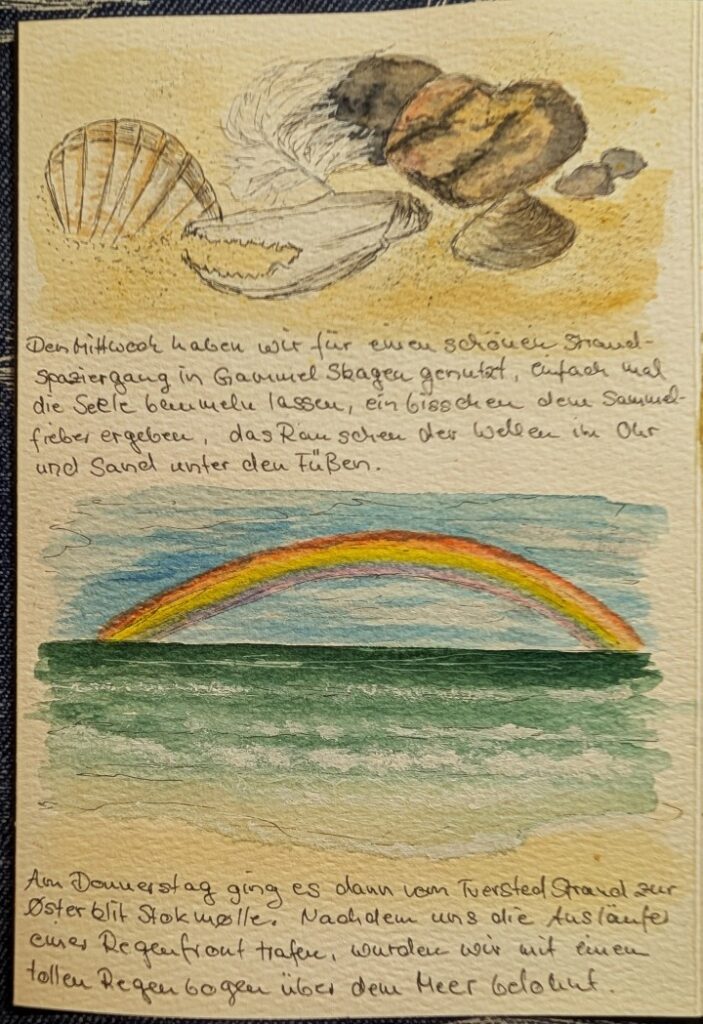 Den Mittwoch haben wir für einen schönen Strand-
spaziergang in Gammel Skagen genutzt, einfach mal
die Seele baumeln lassen, ein bisschen dem Sammel-
fieber ergeben, das Rauschen der Wellen im Ohr
und Sand unter den Füßen.
Am Donnerstag ging es dann vom Tversted Strand zur
Østerklit Stokmølle. Nachdem uns die Ausläufer
einer Regenfront trafen, wurden wir mit einem
tollen Regenbogen über dem Meer belohnt.